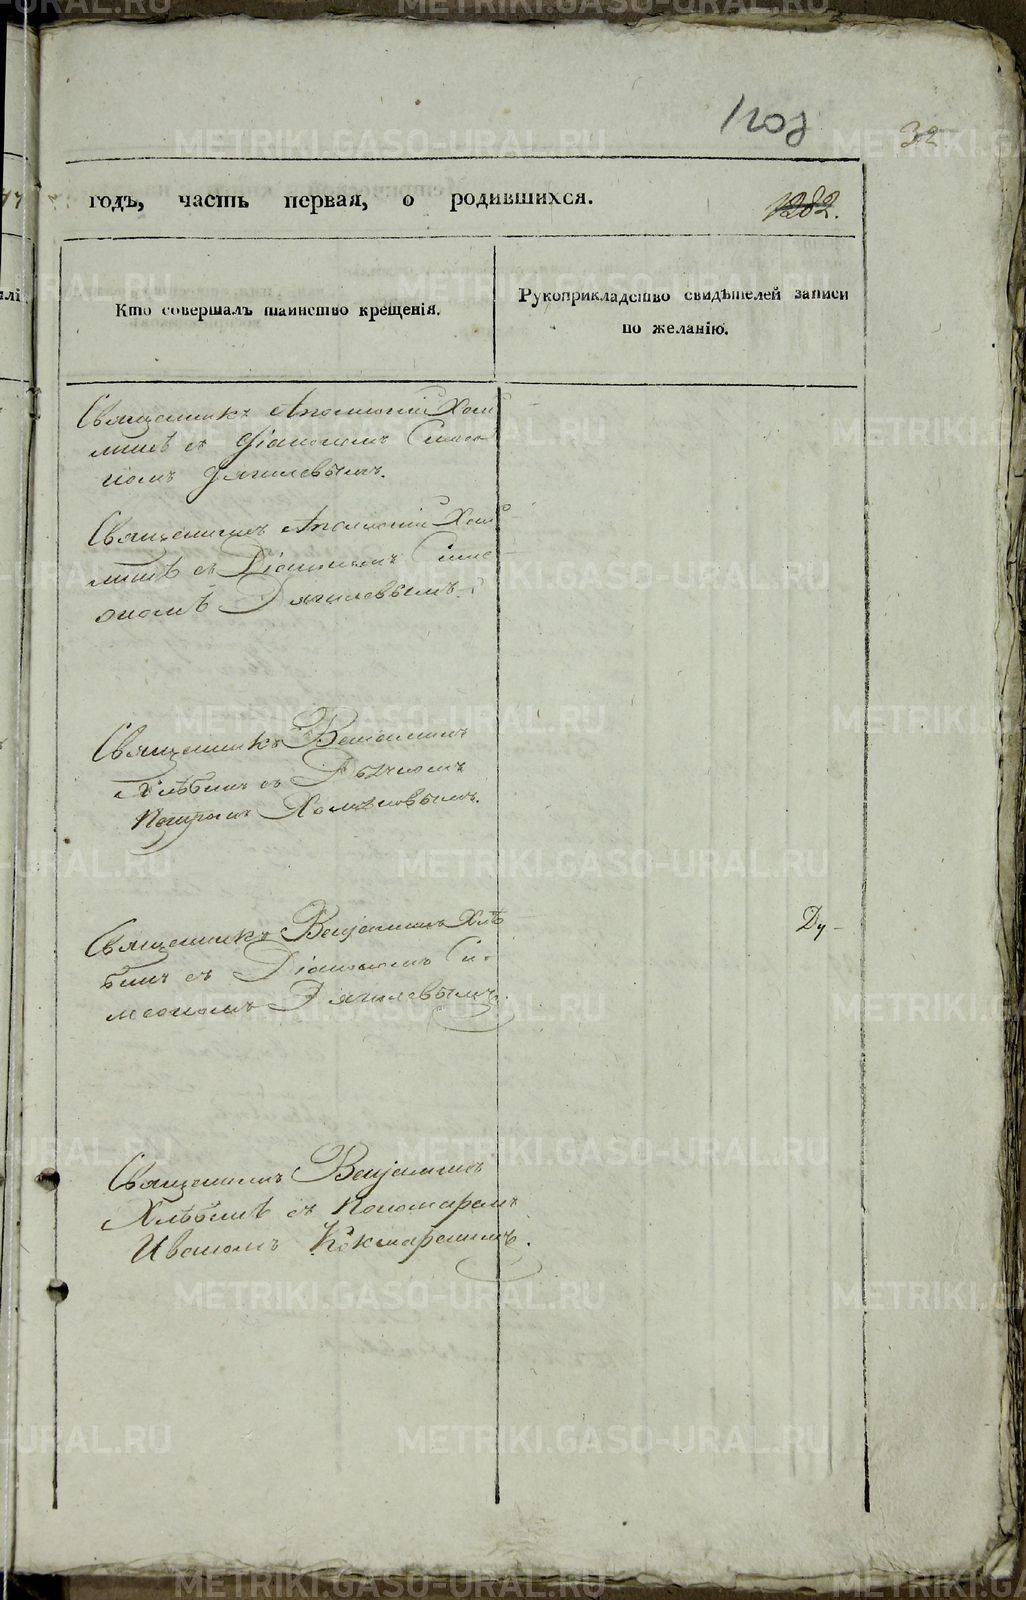 1203
32
годъ, часть первая, о родившихся.
1282.
Кто совершалъ таинство крещенія.
Рукоприкладство свидѣтелей записи
по желанію.
Священникъ Аполлоній Хлѣ
бинъ съ Діакономъ Симео
номъ Дягилевымъ.
Священникъ Аполлоній Хлѣ
бинъ съ Діакономъ Симе
ономъ Дягилевымъ.
Священникъ Веніаминъ
Хлѣбинъ съ Дьячкомъ
Петромъ
Священникъ Веніаминъ Хлѣ
бинъ съ Діакономъ Си-
меономъ Дягилевымъ.
Ду -
Священникъ Веніаминъ
Хлѣбинъ съ Пономаремъ
Иваномъ Кокшаринымъ.
METRIKI.GASO-URAL.RU